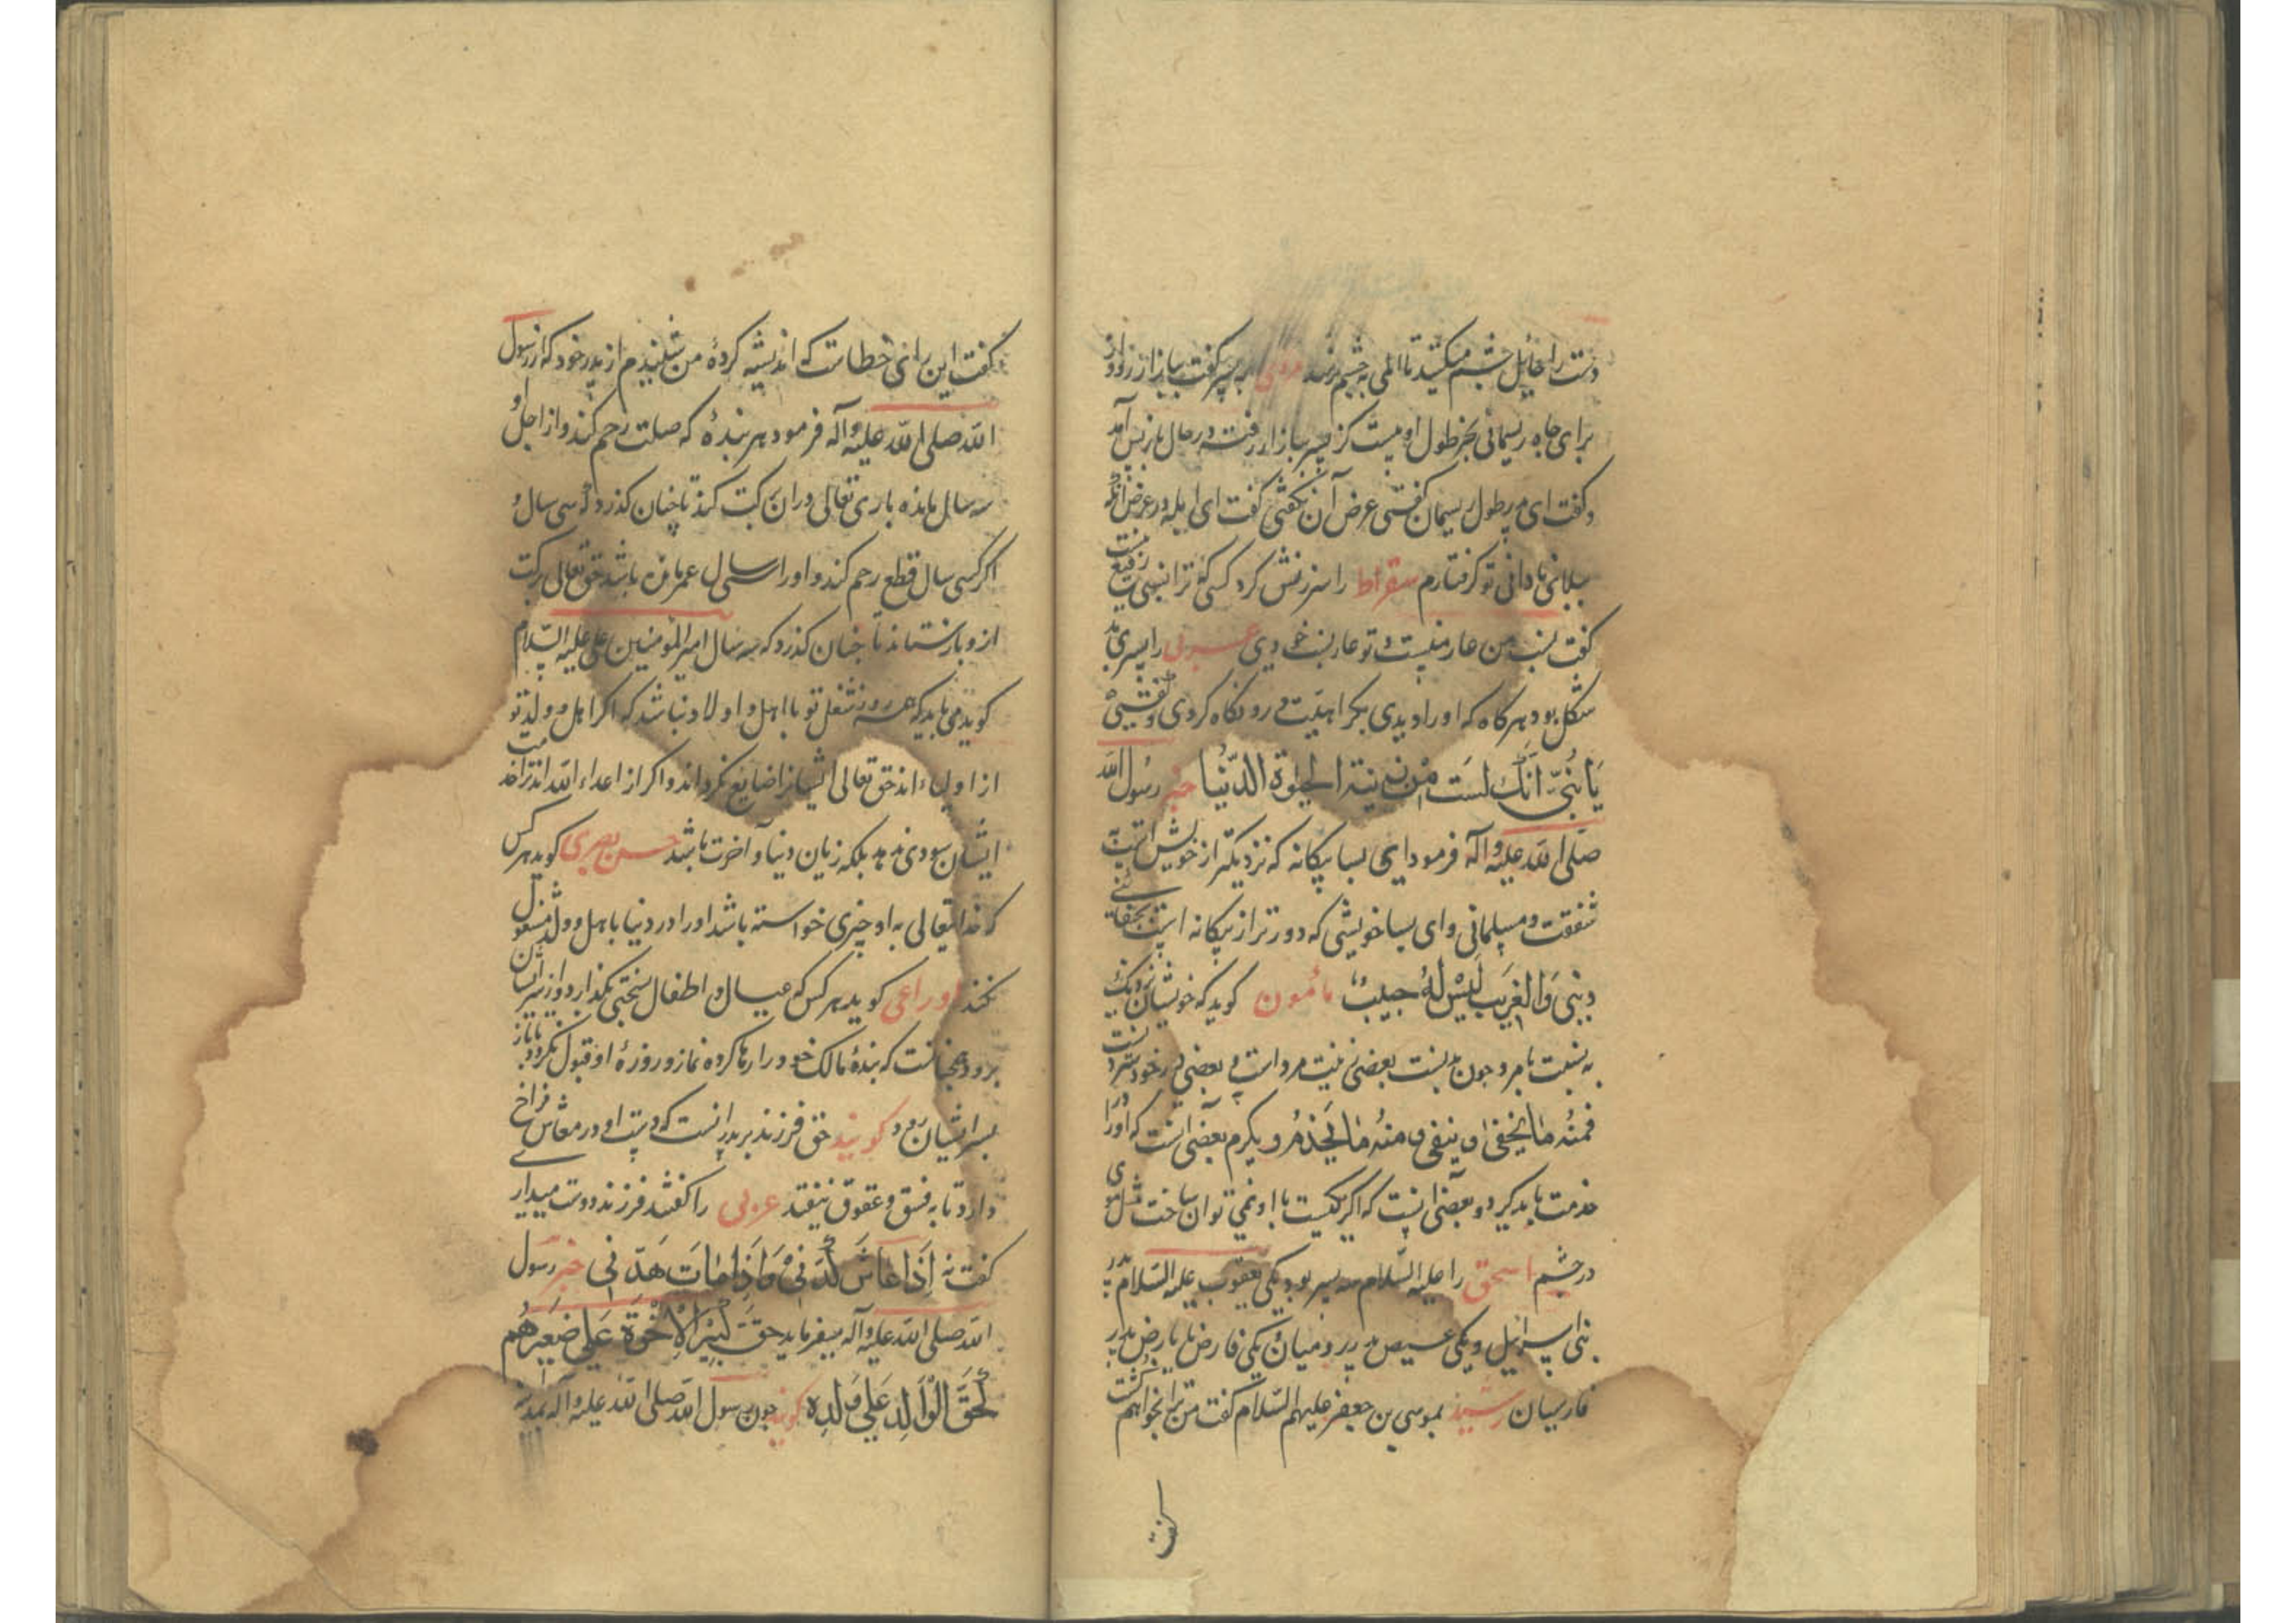 دست را حایل چشم میکنید تا المی به چشم نرسد مردی به پسر گفت ببازار رو و از
برای چاه ریسمانی بخر طول او بیست گز پسر ببازار رفت و در حال باز پس آمد
و گفت ای پدر طول ریسمان گفتی عرض آن نگفتی گفت ای ابله در عرض آنکه
ببلای نادانی تو گرفتارم سقراط را سرزنش کرد کسی که ترا نسبی رفیع نیست
گفت نسب من عار منست و تو عار نسب خودی عربی را پسری بد
شکل بود هرگاه که اورا دیدی بکراهیت در رو نگاه کردی و گفتی
یَا بُنَیَّ اِنَّکَ لَسْتَ مِنْ زینة الحیوة الدُّنْیا خبر رسول الله
صلی الله علیه و آله فرمود ای بسا بیگانه که نزدیکتر از خویش است به
شفقت و مسلمانی و ای بسا خویشی که دورتر از بیگانه است بجفا و بی
دینی وَالْغَریب لَیْسَ لَهُ حبیبٌ مأمون گوید که خویشان نزدیک
به نسبت بامرد چون بدنست بعضی زینت مرد است و بعضی در خود سترد نیست
فمنهُ ما یخفی و ینفی و منهُ ما یخدم و یکرم بعضی آنست که اورا
خدمت باید کرد و بعضی آنست که اگر یکیست با او نمی توان ساخت مثل موی
در چشم اسحق را علیه السّلام سه پسر بود یکی یعقوب علیه السّلام پدر
بنی اسرائیل و یکی عیص پدر روم و میان یکی فارض یا یارض پدر
فارسیان رشید بموسی بن جعفر علیهم السّلام گفت من ترا بخواهم کشت
گفت
گفت این رای خطاست که اندیشه کردهٔ من شنیدم از پدر خود که از رسول
الله صلی الله علیه و آله فرمود هر بندهٔ که صلت رحم کند و از اجل او
سه سال مانده باری تعالی در ان برکت کند تا چنان گذرد که سی سال و
اگر کسی سال قطع رحم کند و اورا سی سال عمر مانده باشد حق تعالی برکت
از و بازستاند تا چنان گذرد که سه سال امیر المؤمنین علی علیه السّلام
گوید می باید که همه روز شغل تو با اهل و اولاد نباشد که اگر اهل و ولد تو
از اولیاء اند حق تعالی ایشانرا ضایع نگرداند و اگر از اعداء الله اند ترا خدمت
ایشان سودی ندهد بلکه زیان دنیا و آخرت باشد حسن بصری گوید هر کس
که خدایتعالی به او چیزی خواسته باشد اورا در دنیا باهل و ولد مشغول
نکند اوزاعی گوید هر کس که عیال و اطفال بسختی بگذارد و از سر ایشان
برود همچنانست که بندهٔ مالک خود را رها کرده نماز و روزهٔ او قبول نگردد تا باز
بسر ایشان رود گویند حق فرزند بر پدر آنست که دست او در معاش فراخ
دارد تا به فسق و عقوق نیفتد عربی را گفتند فرزند دوست میداری
گفت نه اِذَا عَاشَ کَدَّنی وَ اِذَا مَاتَ هَدَّنی خبر رسول
الله صلی الله علیه و آله میفرماید حَقَّ کَبیرِ الْاِخْوَةِ عَلی صَغیرِهُم
کَحَقَّ الْوَالِدِ عَلی وَلَدِهِ گویند چون رسول الله صلی الله علیه و آله بمدینه